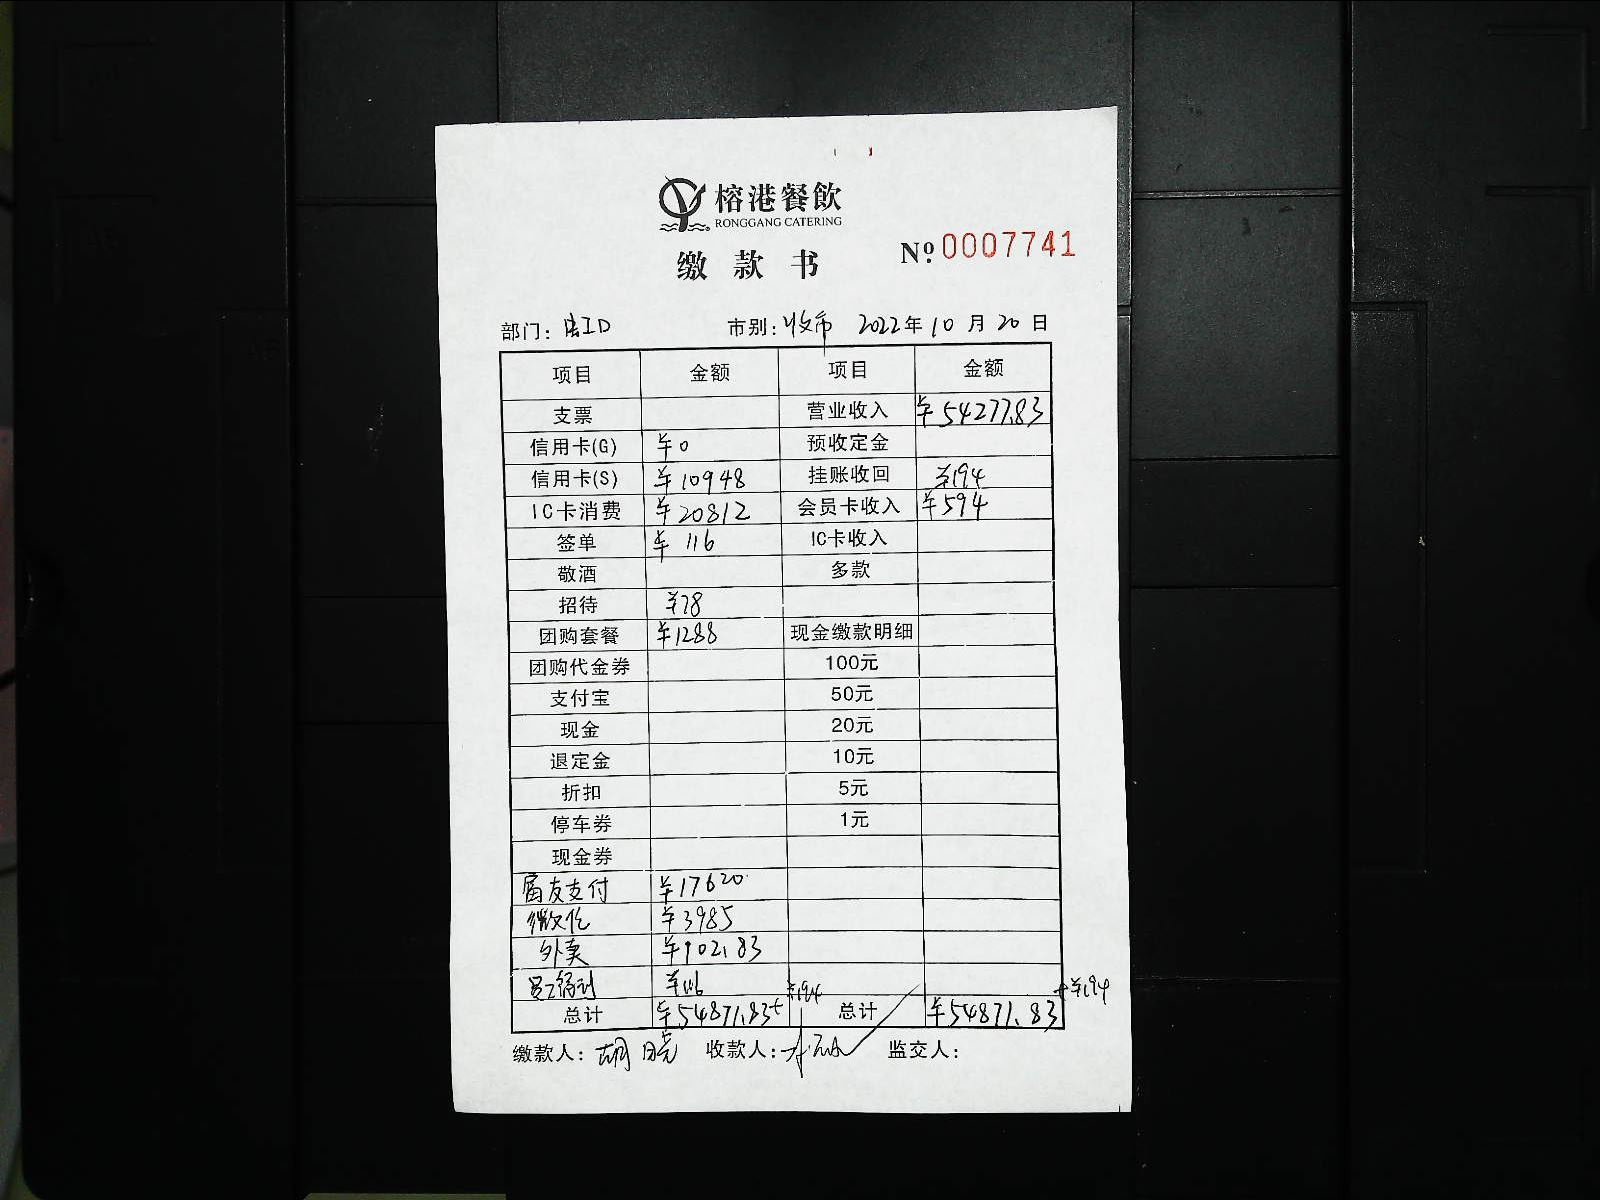 榕港餐飲
RONGGANG CATERING
缴款书
№ 0007741
部门： 市别：收市 2022年10月20日
项目 金额 项目 金额
支票 营业收入 ¥54277.83
信用卡(G) ¥0 预收定金
信用卡(S) ¥10948 挂账收回 ¥194
IC卡消费 ¥20812 会员卡收入 ¥594
签单 ¥116 IC卡收入
敬酒 多款
招待 ¥78
团购套餐 ¥1288 现金缴款明细
团购代金券 100元
支付宝 50元
现金 20元
退定金 10元
折扣 5元
停车券 1元
现金券
富友支付 ¥17620
¥3985
外卖 ¥102.83
员工福利
总计 ¥54871.83+¥194 总计 ¥54871.83+¥194
缴款人：胡晓 收款人： 监交人：